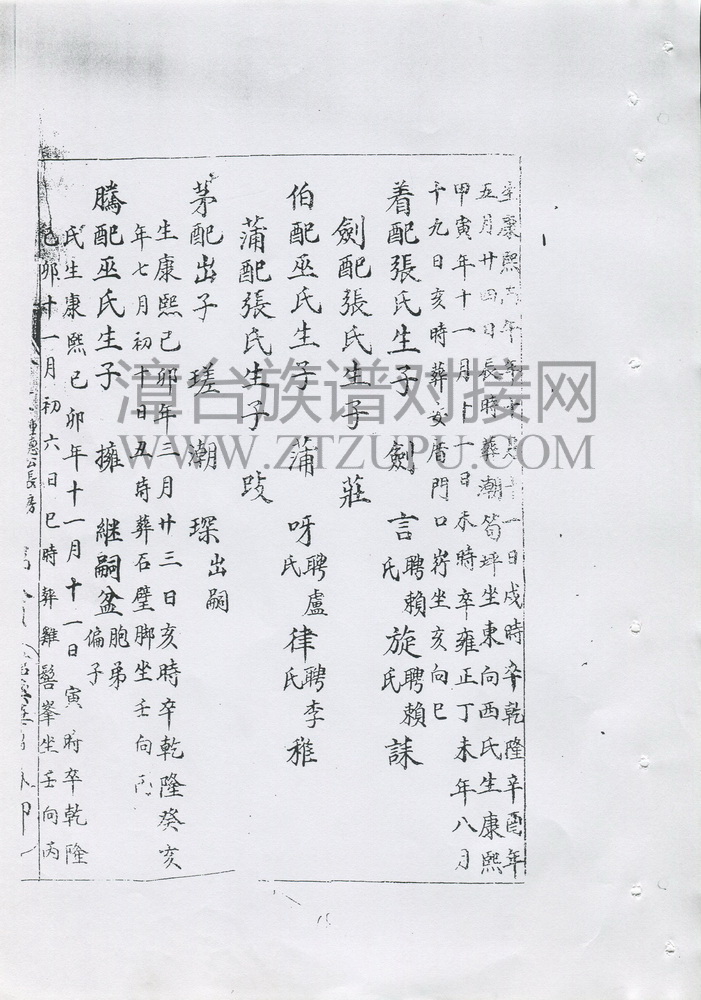 生康熙丙午年十月十一日戌時卒乾隆辛酉年
五月廿四日長時葬潮筍坪坐東向西氏生康熙
甲寅年十一月十一日未時卒雍正丁未年八月
十九日亥時葬安厝門口崭坐亥向巳
着配張氏生子 劍 言聘賴氏 旋聘賴氏 誄
劍配張氏生子 莊
伯配巫氏生子 蒲 呀聘盧氏 律聘李氏 稚
蒲配張氏生子 跂
茅配出子 瑳 潮 琛出嗣
生康熙己卯年三月廿三日亥時卒乾隆癸亥
年七月初十日五時葬石璧脚坐壬向丙
騰配巫氏生子 擁 継嗣盆胞弟偏子
氏生康熙己卯年十一月十一日寅時卒乾隆
己卯十一月初六日巳時葬雞髻峯坐壬向丙
重德公長房
漳台族谱对接网
WWW.ZTZUPU.COM